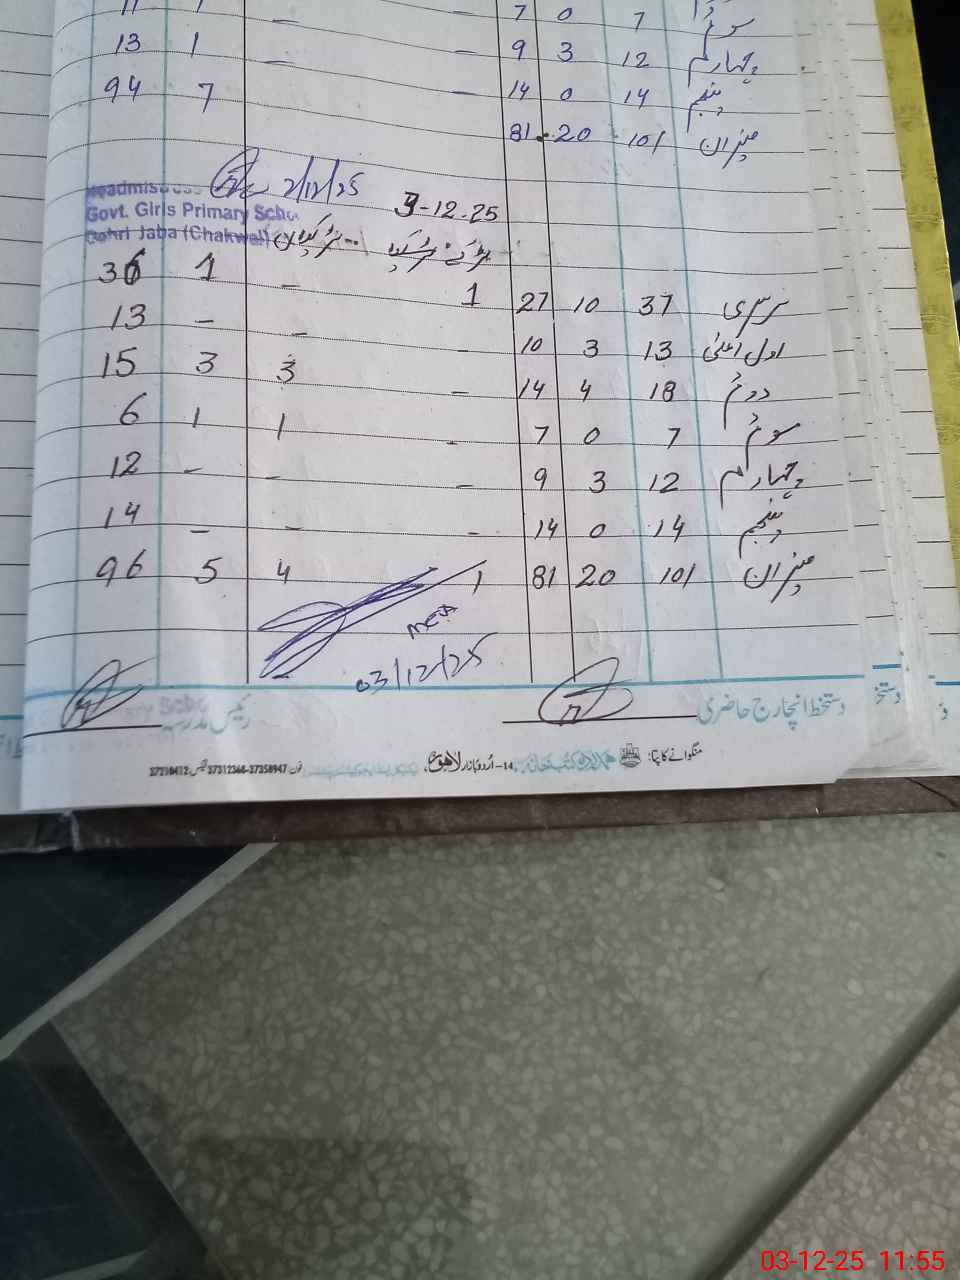 7 0 7 سوئم
13 1 — — 9 3 12 چہارم
94 7 — 14 0 14 پنجم
81 20 101 میزان
Headmistress 2/12/25
Govt. Girls Primary Scho
Dohri Jaba (Chakwal) 3-12-25
36 1 — 1 27 10 37 نرسری
13 — — — 10 3 13 اول اعلیٰ
15 3 3 — 14 4 18 دوئم
6 1 1 — 7 0 7 سوئم
12 — — — 9 3 12 چہارم
14 — — — 14 0 14 پنجم
96 5 4 1 81 20 101 میزان
MEA
03/12/25
دستخط انچارج حاضری
رئیس مدرسہ
ary Scho
منگوانے کا پتا: ہمدرد کتب خانہ 14-اُردو بازار لاہور فون 37358947-37312344 فیکس 37210412
03-12-25 11:55